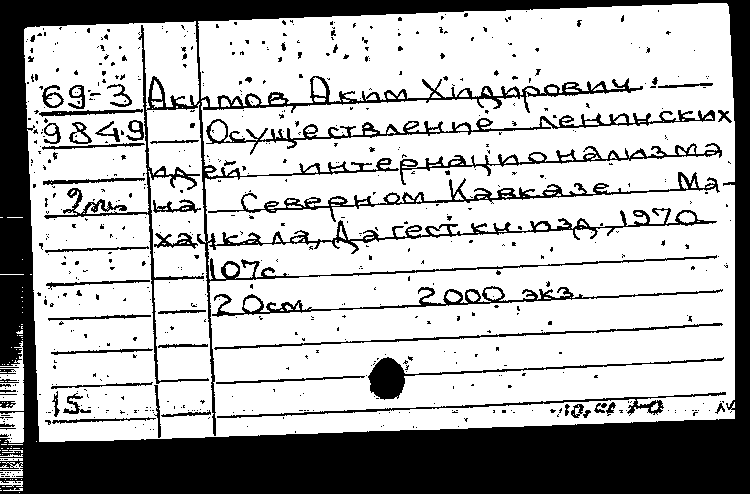 69-3 Акимов, Аким Хидирович
9849 Осуществление ленинских
идей интернационализма
на Северном Кавказе. Ма-
хачкала, Дагест. кн. изд., 1970
107с.
20см. 2000 экз.
15.